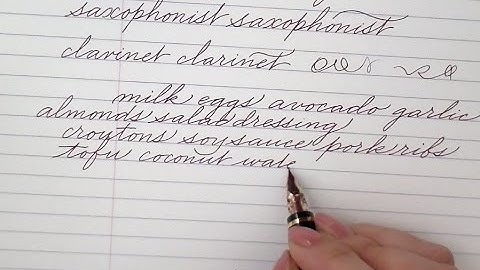 saxophonist saxophonist
clarinet clarinet
milk eggs avocado garlic
almonds salad dressing
croutons soy sauce pork ribs
tofu coconut wate